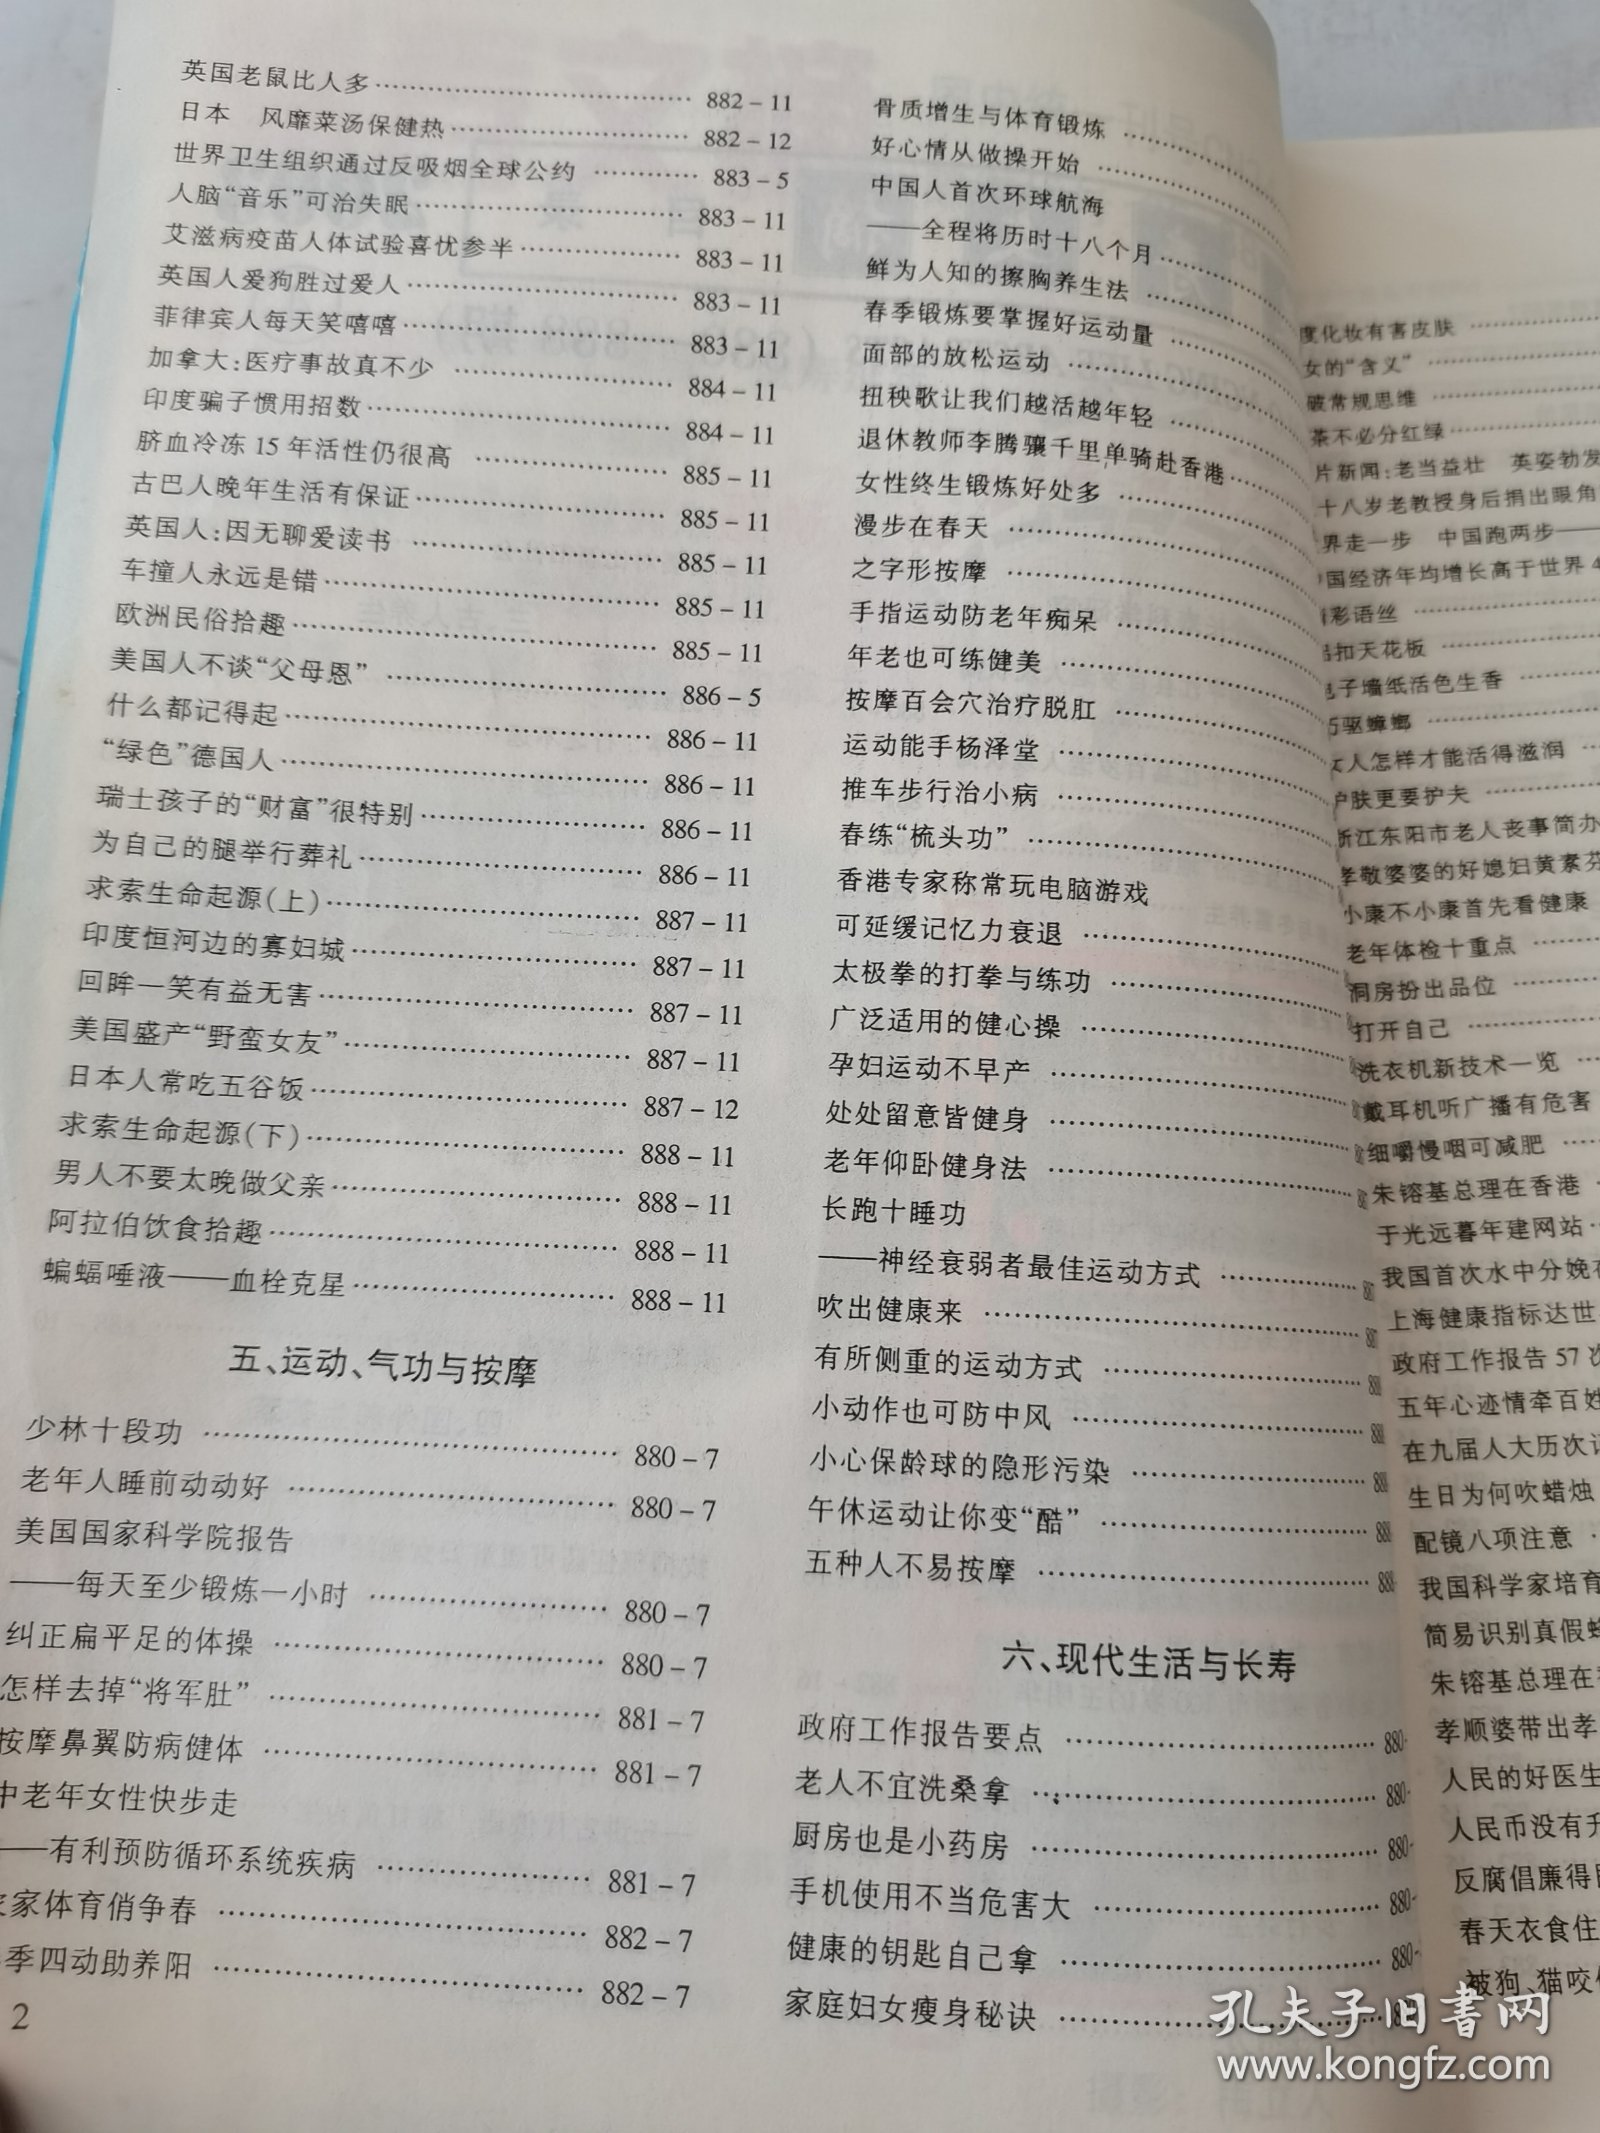 英国老鼠比人多……………………………… 882－11
日本　风靡菜汤保健热……………………… 882－12
世界卫生组织通过反吸烟全球公约 ………… 883－5
人脑“音乐”可治失眠………………………… 883－11
艾滋病疫苗人体试验喜忧参半……………… 883－11
英国人爱狗胜过爱人………………………… 883－11
菲律宾人每天笑嘻嘻………………………… 883－11
加拿大:医疗事故真不少 …………………… 884－11
印度骗子惯用招数…………………………… 884－11
脐血冷冻 15 年活性仍很高 ………………… 885－11
古巴人晚年生活有保证……………………… 885－11
英国人:因无聊爱读书 ……………………… 885－11
车撞人永远是错……………………………… 885－11
欧洲民俗拾趣………………………………… 885－11
美国人不谈“父母恩” ………………………… 886－5
什么都记得起………………………………… 886－11
“绿色”德国人………………………………… 886－11
瑞士孩子的“财富”很特别…………………… 886－11
为自己的腿举行葬礼………………………… 886－11
求索生命起源(上)…………………………… 887－11
印度恒河边的寡妇城………………………… 887－11
回眸一笑有益无害…………………………… 887－11
美国盛产“野蛮女友”………………………… 887－11
日本人常吃五谷饭…………………………… 887－12
求索生命起源(下)…………………………… 888－11
男人不要太晚做父亲………………………… 888－11
阿拉伯饮食拾趣……………………………… 888－11
蝙蝠唾液——血栓克星……………………… 888－11
五、运动、气功与按摩
少林十段功 …………………………………… 880－7
老年人睡前动动好 …………………………… 880－7
美国国家科学院报告
——每天至少锻炼一小时 …………………… 880－7
纠正扁平足的体操 …………………………… 880－7
怎样去掉“将军肚” …………………………… 881－7
按摩鼻翼防病健体 …………………………… 881－7
中老年女性快步走
——有利预防循环系统疾病 ………………… 881－7
家体育俏争春 ………………………………… 882－7
季四动助养阳 ………………………………… 882－7
2
骨质增生与体育锻炼 …………………
好心情从做操开始 ……………………
中国人首次环球航海
——全程将历时十八个月………………
鲜为人知的擦胸养生法 ………………
春季锻炼要掌握好运动量 ……………
面部的放松运动 ………………………
扭秧歌让我们越活越年轻 ……………
退休教师李腾骧千里单骑赴香港………
女性终生锻炼好处多 …………………
漫步在春天 ……………………………
之字形按摩 ……………………………
手指运动防老年痴呆 …………………
年老也可练健美 ………………………
按摩百会穴治疗脱肛 …………………
运动能手杨泽堂 ………………………
推车步行治小病 ………………………
春练“梳头功” …………………………
香港专家称常玩电脑游戏
可延缓记忆力衰退 ……………………
太极拳的打拳与练功 …………………
广泛适用的健心操 ……………………
孕妇运动不早产 ………………………
处处留意皆健身 ………………………
老年仰卧健身法 ………………………
长跑十睡功
——神经衰弱者最佳运动方式 …………
吹出健康来 ……………………………
有所侧重的运动方式 …………………
小动作也可防中风 ……………………
小心保龄球的隐形污染 ………………
午休运动让你变“酷” …………………
五种人不易按摩 ………………………
六、现代生活与长寿
政府工作报告要点 …………………… 880
老人不宜洗桑拿 ……………………… 880
厨房也是小药房 ……………………… 880
手机使用不当危害大 ………………… 880
健康的钥匙自己拿 …………………… 880
家庭妇女瘦身秘诀 ……………………
度化妆有害皮肤 …………
女的“含义” …………
破常规思维 …………
茶不必分红绿 …………
片新闻:老当益壮　英姿勃发
十八岁老教授身后捐出眼角
界走一步　中国跑两步——
国经济年均增长高于世界 4
彩语丝 …………
扣天花板 …………
子墙纸活色生香 …………
巧驱蟑螂 …………
女人怎样才能活得滋润 ……
护肤更要护夫 …………
浙江东阳市老人丧事简办
孝敬婆婆的好媳妇黄素芬
小康不小康首先看健康
老年体检十重点 …………
洞房扮出品位 …………
打开自己 …………
洗衣机新技术一览 ……
戴耳机听广播有危害
细嚼慢咽可减肥 ……
朱镕基总理在香港
于光远暮年建网站…
我国首次水中分娩在
上海健康指标达世
政府工作报告 57 次
五年心迹情牵百姓
在九届人大历次记
生日为何吹蜡烛
配镜八项注意
我国科学家培育
简易识别真假蜂
朱镕基总理在
孝顺婆带出孝
人民的好医生
人民币没有升
反腐倡廉得
春天衣食住
被狗、猫咬
孔夫子旧书网
www.kongfz.com